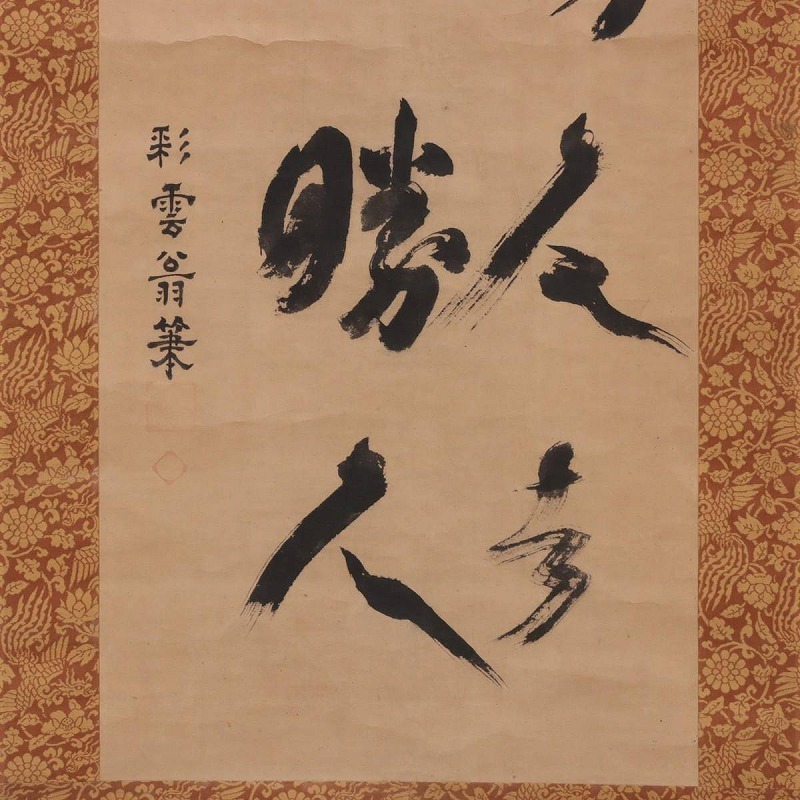 人
勝人
彩雲翁筆